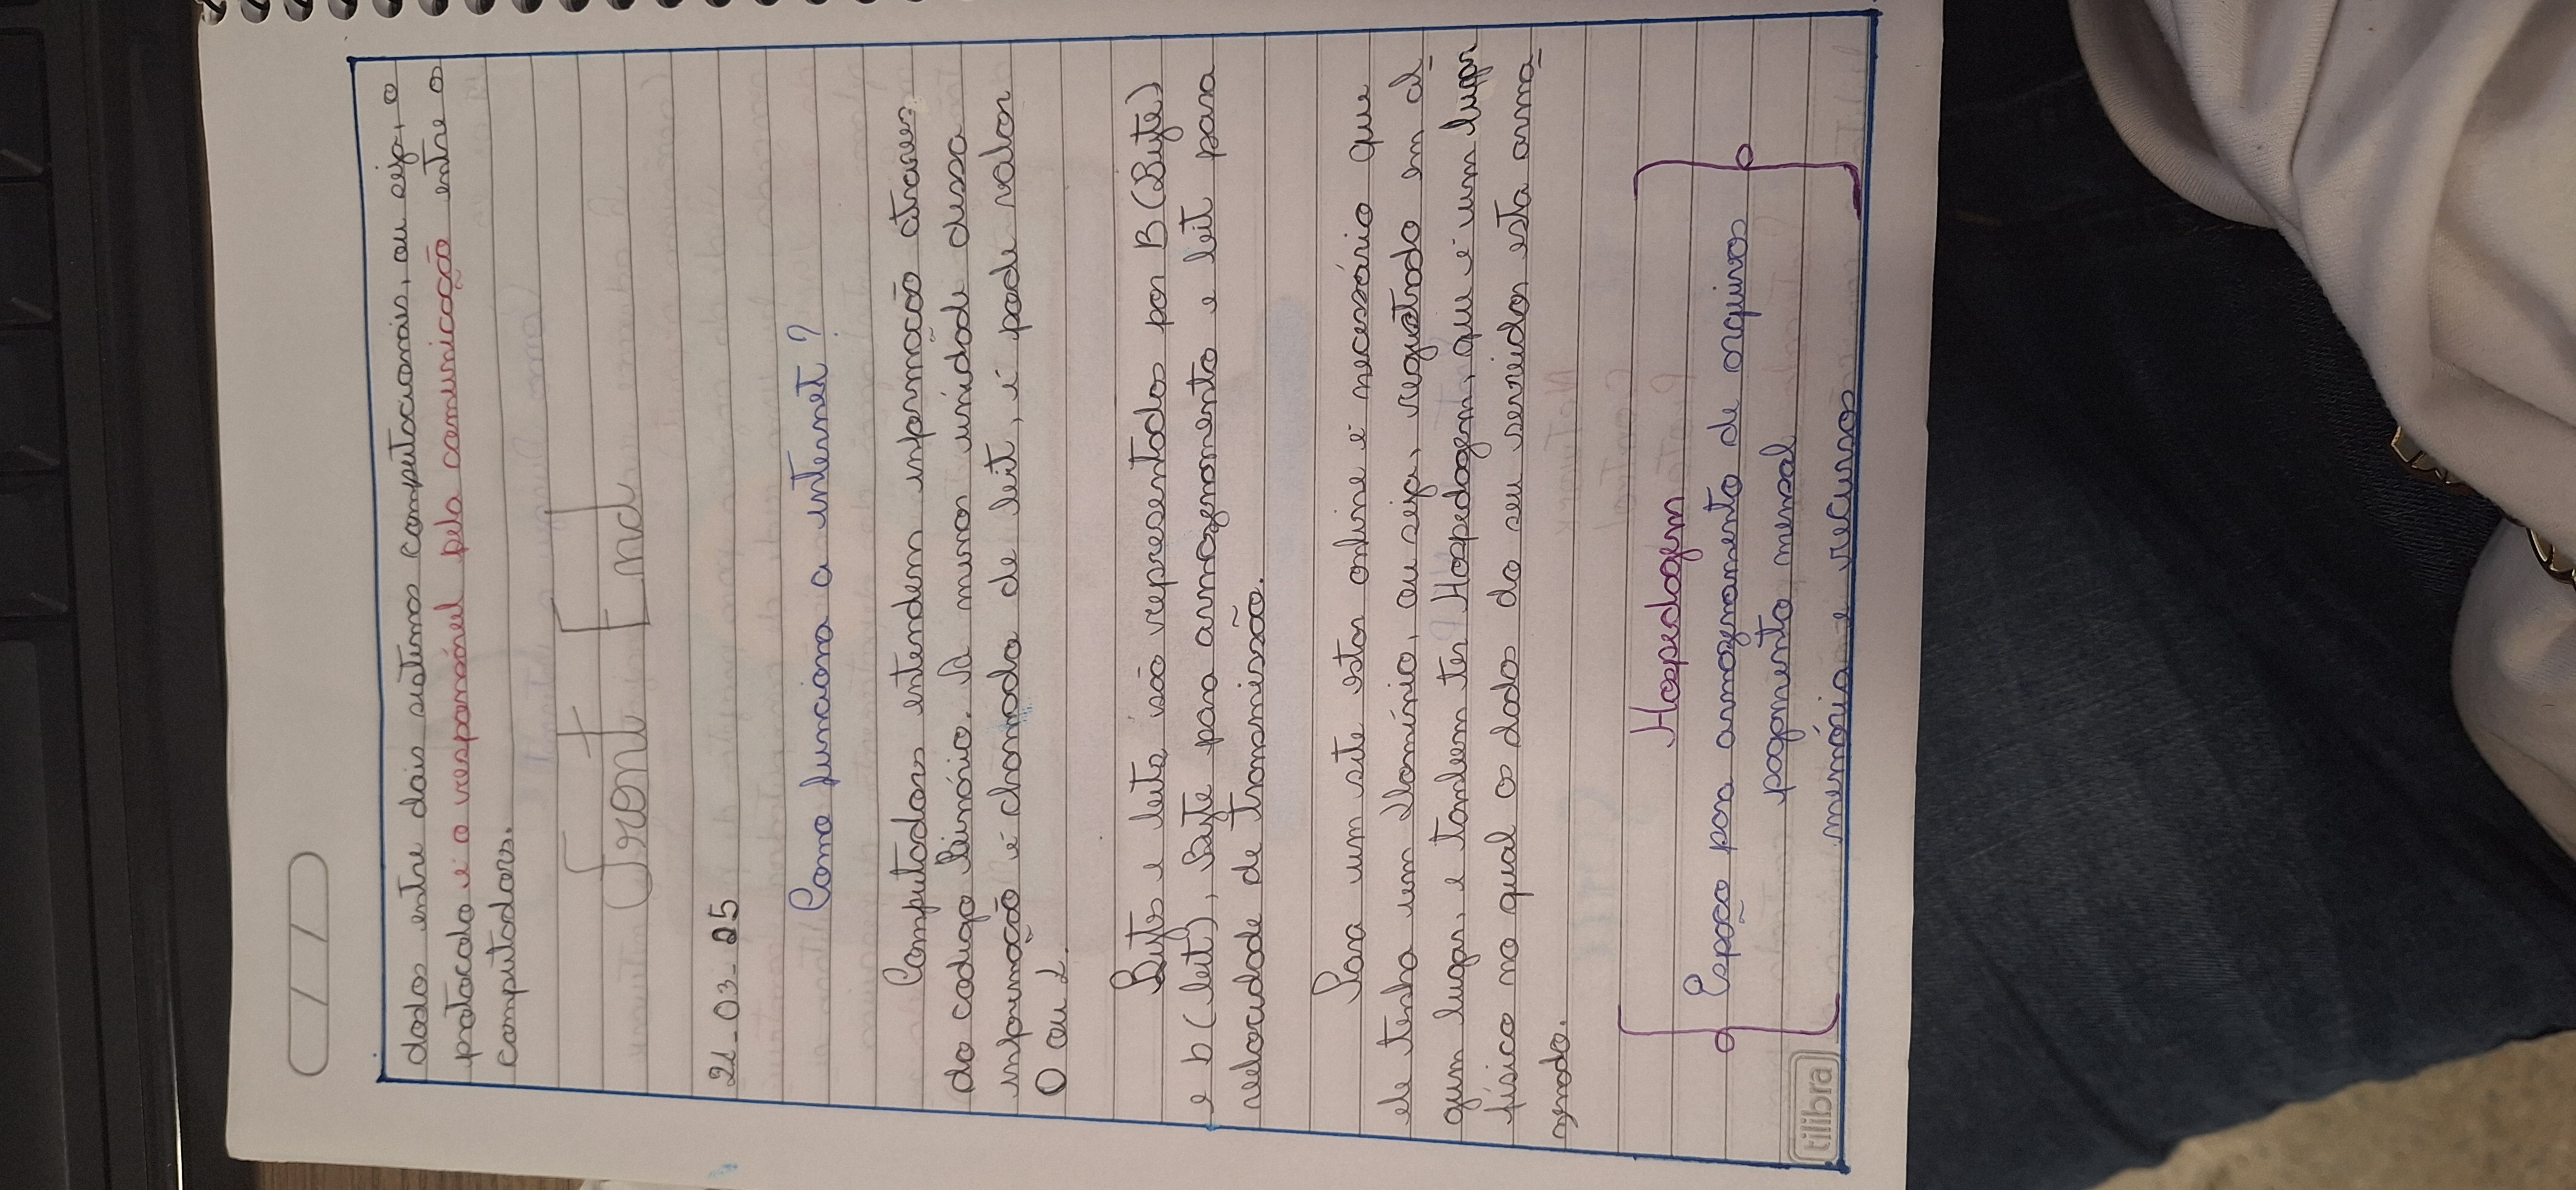 dados entre dois sistemas computacionais, ou seja, o
protocolo é o responsável pela comunicação entre os
computadors.
Front End
21-03-25
Como funciona a internet?
Computadors entendem informação atraves
do codigo Binário. A menor unidade dessa
informação é chamada de bit, é pode valor
0 ou 1.
Bytes e bits são representados por B (Byte)
e b (bit), Byte para armazenamento e bit para
velocidade de transmissão.
Para um site estar online é necessário que
ele tenha um Domínio, ou seja, registrado em al
gum lugar, e tambem ter Hospedagem, que é um lugar
físico no qual os dados do seu servidor esta arma
zenado.
Hospedagem
Espaço para armazenamento de arquivos
pagamento mensal
memória e recursos
tilibra